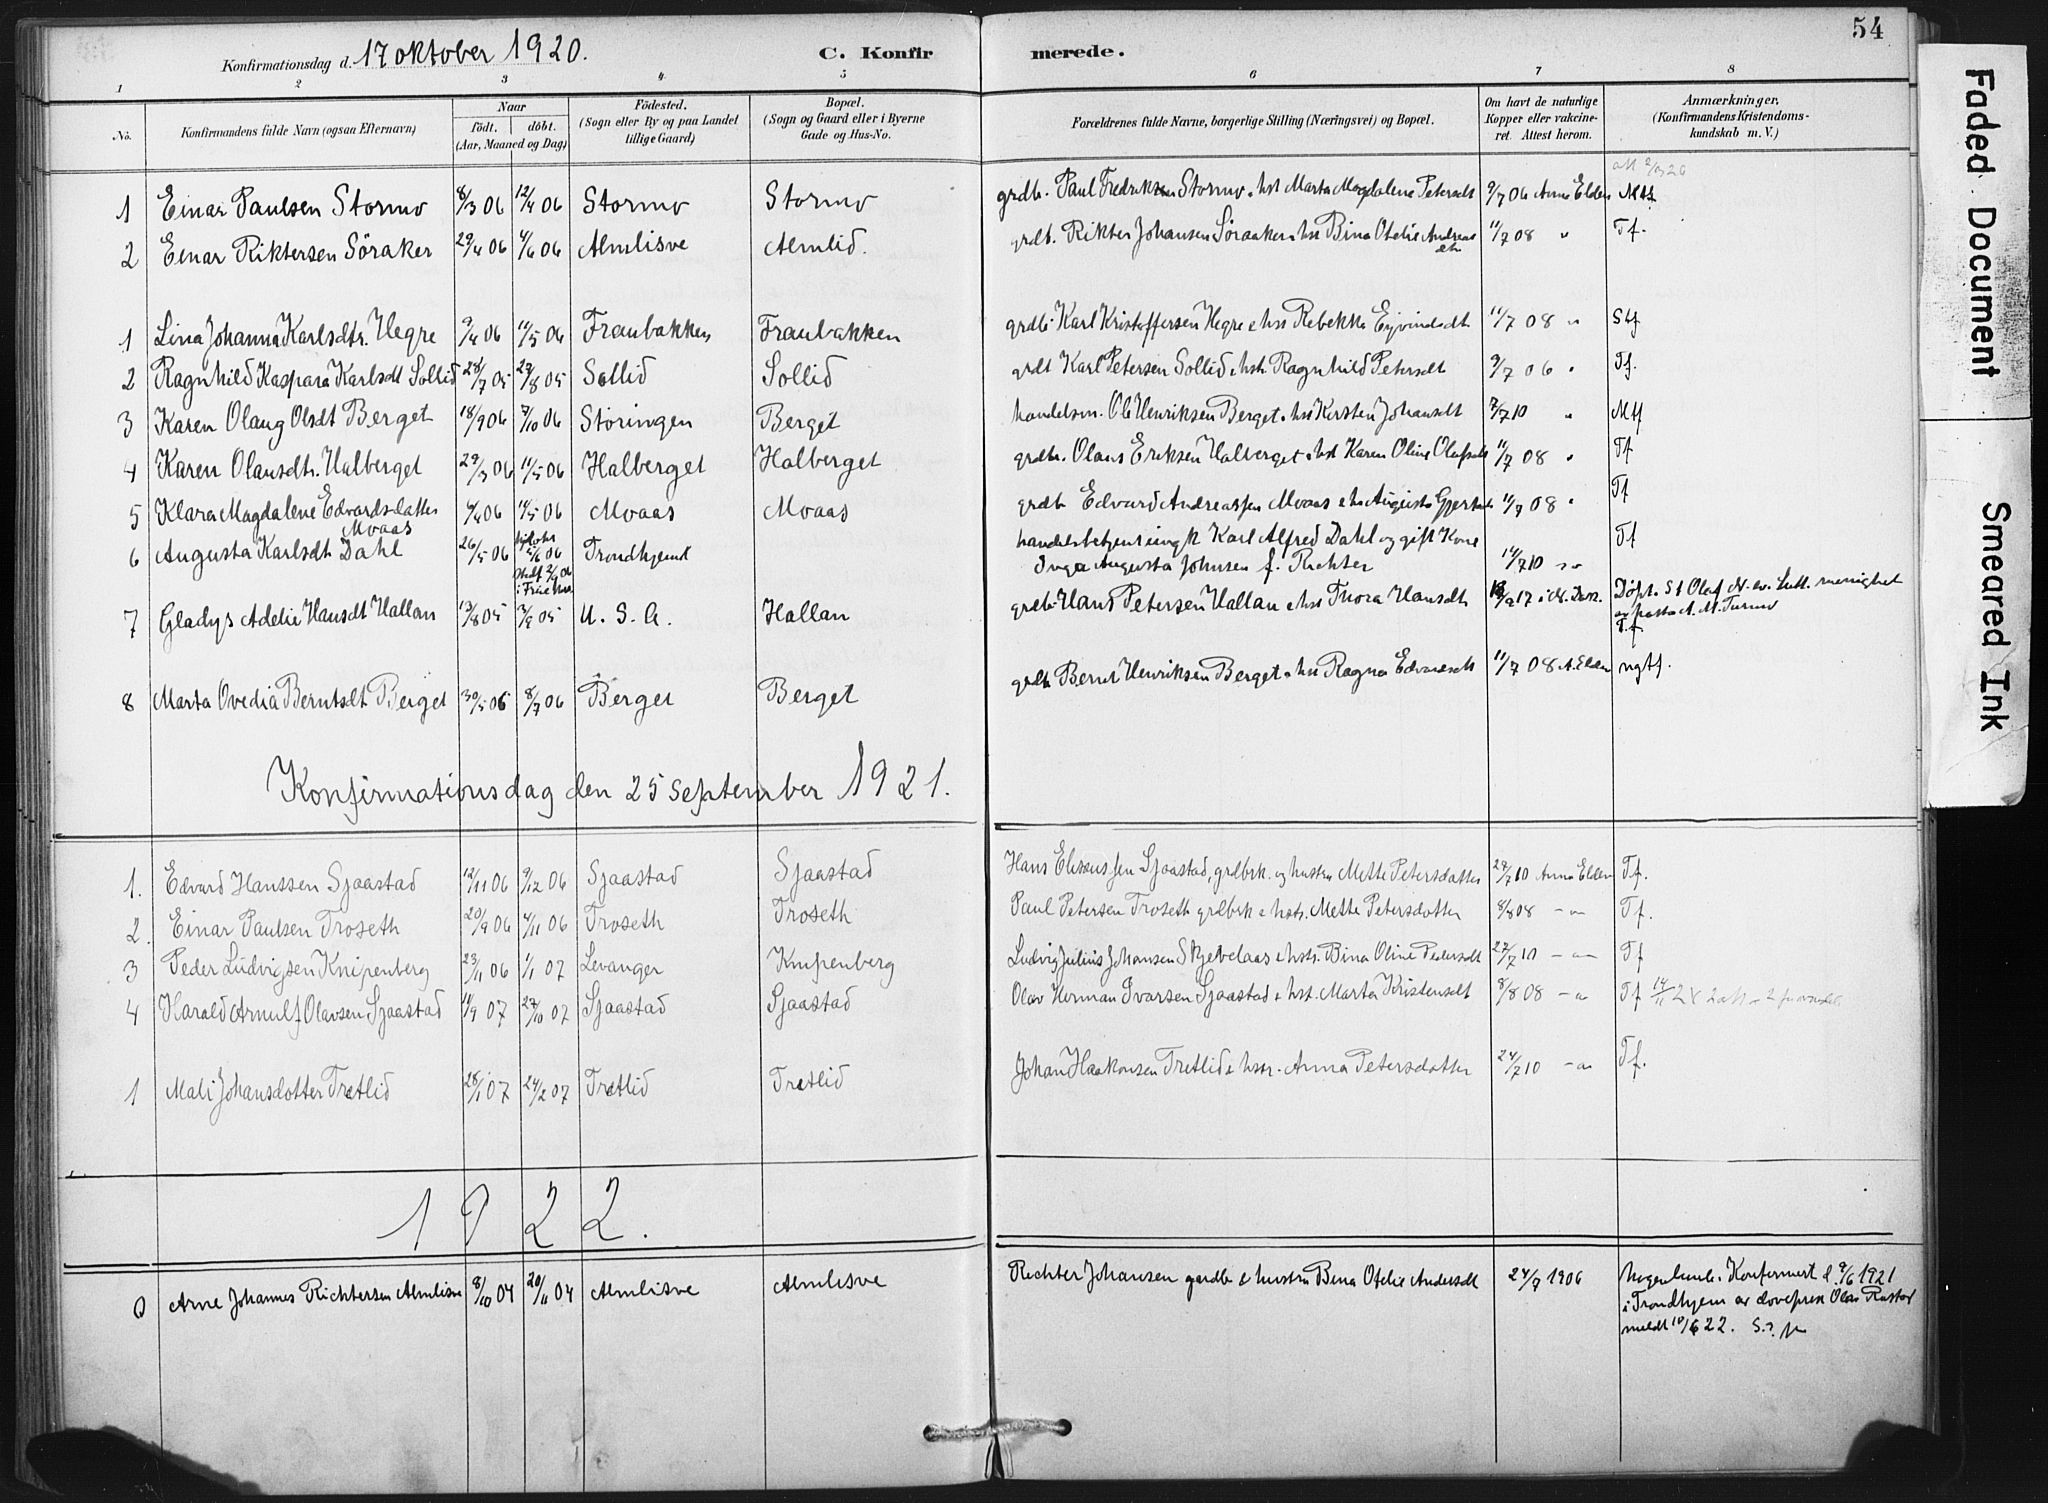 54
Konfirmationsdag d. 17 oktober 1920.
C. Konfir merede.
1 2 3 4 5 6 7 8
No.
Konfirmandens fulde Navn (ogsaa Efternavn)
Naar
födt. döbt.
(Aar, Maaned og Dag)
Födested.
(Sogn eller By og paa Landet
tillige Gaard)
Bopæl.
(Sogn og Gaard eller i Byerne
Gade og Hus-No.
Forældrenes fulde Navne, borgerlige Stilling (Næringsvei) og Bopæl.
Om havt de naturlige
Kopper eller vakcine-
ret. Attest herom.
Anmærkninger.
(Konfirmandens Kristendoms-
kundskab m. V.)
1 Einar Paulsen Stormo 8/3 06 12/4 06 Stormo Stormo grdb. Paul Fredriksen Stormo & hst Marta Magdalene Petersdt 9/7 06 Anna Elden Mtf
2 Einar Riktersen Söraker 29/4 06 4/6 06 Almlisve Almlid. grdb. Rikter Johansen Söraaker & hst Bina Otelie Andreas
dtr 11/7 08 " Tf.
1 Lina Johanna Karlsdtr. Hegre 9/4 06 11/5 06 Fraubakken Fraubakken grdb. Karl Kristoffersen Hegre & hst Rebekka Eyvindsdt 11/7 08 " Stf
2 Ragnhild Kaspara Karlsdt Sollid 28/7 05 29/8 05 Sollid Sollid grdb Karl Petersen Sollid & hst. Ragnhild Petersdt 9/7 06 " Tf.
3 Karen Olaug Olsdt Berget 18/9 06 7/10 06 Störingen Berget handelsm. Ole Henriksen Berget & hst Kirsten Johansdt 7/7 10 " Mtf
4 Karen Olausdtr. Halberget 29/3 06 11/5 06 Halberget Halberget grdbr. Olaus Eriksen Halberget & hst Karen Oline Olafsdt 11/7 08 " Tf
5 Klara Magdalene Edvardsdatter
Moaas 4/4 06 11/5 06 Moaas Moaas grdb Edvard Andreassen Moaas & hst Augusta 11/7 08 " Tf
6 Augusta Karlsdt Dahl 26/5 06 5/6 06 Trondhjem handelsbetjent Karl Alfred Dahl og gift Kone
Inga Augusta Johnsen f. Richter 14/7 10 Tf
7 Gladys Adelie Hansdt Hallan 13/8 05 3/9 05 U. S. A. Hallan grdb. Hans Petersen Hallan & hst Thora Hansdt 17 Döpt. St Olaf N. ev. Luth. menighet
av pastor A. M.
T.f.
8 Marta Ovedia Berntsdt Berget 30/5 06 8/7 06 Berget Berget grdb Bernt Henriksen Berget & hst Ragna Edvardsdt 11/7 08 A. Elden ngtf.
Konfirmationsdag den 25 september 1921.
1. Edvard Hanssen Sjaastad 12/11 06 9/12 06 Sjaastad Sjaastad Hans Eliseussen Sjaastad, grdbrk. og hustru Mette Petersdatter 27/7 10 Anna Elden Tf.
2. Einar Paulsen Troseth 20/9 06 4/11 06 Troseth Troseth Paul Petersen Troseth grdbrk & hstr. Mette Petersdotter 8/8 08 - " - Tf.
3 Peder Ludvigsen Knipenberg 23/11 06 1/1 07 Levanger Knipenberg Ludvig Julius Johansen Skjevelaas & hstr. Bina Oline Pedersdt 27/7 10 - " - Tf
4 Harald Arnulf Olavsen Sjaastad 11/9 07 27/10 07 Sjaastad Sjaastad Olav Herman Ivarsen Sjaastad & hst. Marta Kristensdt 8/8 08 - " Tf
1 Mali Johansdotter Tretlid 28/1 07 24/2 07 Tretlid Tretlid Johan Haakonsen Tretlid & hstr. Anna Petersdotter 24/7 10 - " Tf.
1922.
0 Arne Johannes Richtersen Almlisve 8/10 04 20/11 04 Almlisve Almlisve Rechter Johansen gardbr & hustru Bina Otelie Andersdt 24/7 1906 Nogenlunde. Konfirmert d. 9/6 1921
i Trondhjem av dövepres Olav
meldt 10/6 22.
Faded Document
Smeared Ink